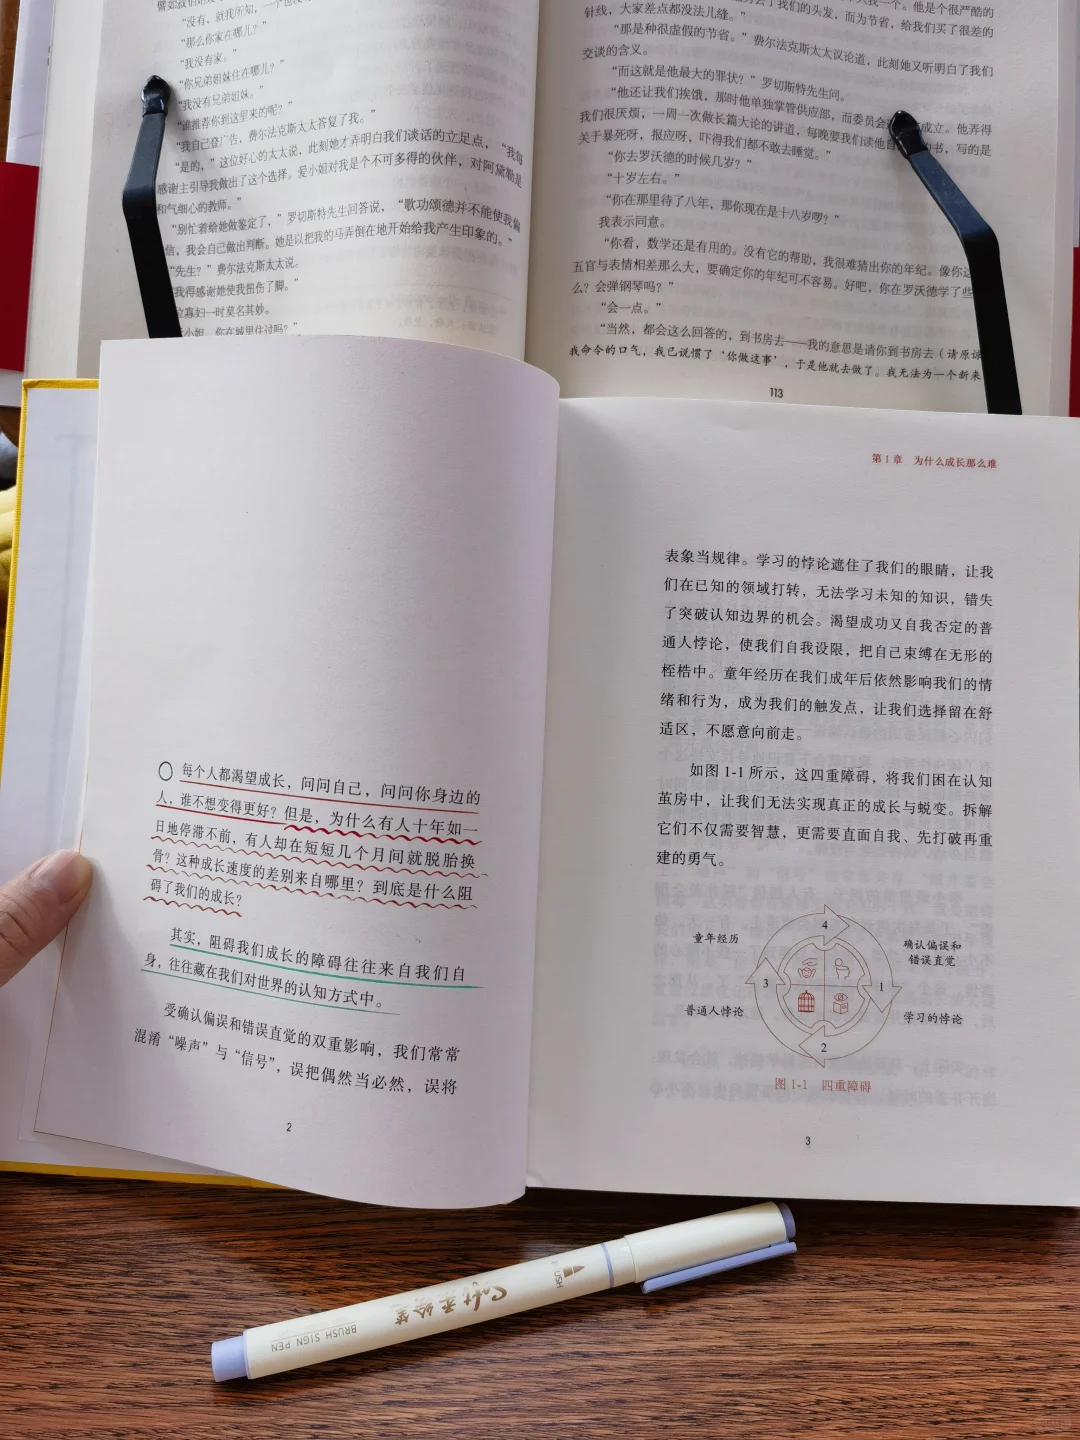 “没有，就我所知，一个也没
“那么你家在哪儿？”
“我没有家。”
“你兄弟姐妹住在哪儿？”
“我没有兄弟姐妹。”
“谁推荐你到这里来的呢？”
“我自己登广告，费尔法克斯太太答复了我。”
“是的，”这位好心的太太说，此刻她才弄明白我们谈话的立足点，“我每
感谢主引导我做出了这个选择。爱小姐对我是个不可多得的伙伴，对阿黛勒是
和气细心的教师。”
“别忙着给她做鉴定了，”罗切斯特先生回答说，“歌功颂德并不能使我偏
信，我会自己做出判断。她是以把我的马弄倒在地开始给我产生印象的。”
“先生？”费尔法克斯太太说。
我得感谢她使我扭伤了脚。”
寡妇一时莫名其妙。
小姐，你在城里住过吗？”
了我们的头发，而为节省，给我们买了很差的
针线，大家差点都没法儿缝。”
“那是种很虚假的节省。”费尔法克斯太太议论道，此刻她又听明白了我们
交谈的含义。
“而这就是他最大的罪状？”罗切斯特先生问。
“他还让我们挨饿，那时他单独掌管供应部，而委员会 成立。他弄得
我们很厌烦，一周一次做长篇大论的讲道，每晚要我们读他自 书，写的是
关于暴死呀，报应呀，吓得我们都不敢去睡觉。”
“你去罗沃德的时候几岁？”
“十岁左右。”
“你在那里待了八年，那你现在是十八岁啰？”
我表示同意。
“你看，数学还是有用的。没有它的帮助，我很难猜出你的年纪。像你这
五官与表情相差那么大，要确定你的年纪可不容易。好吧，你在罗沃德学了些
么？会弹钢琴吗？”
“会一点。”
“当然，都会这么回答的，到书房去——我的意思是请你到书房去（请原谅
我命令的口气，我已说惯了‘你做这事’，于是他就去做了。我无法为一个新来
113
每个人都渴望成长，问问自己，问问你身边的
人，谁不想变得更好？但是，为什么有人十年如一
日地停滞不前，有人却在短短几个月间就脱胎换
骨？这种成长速度的差别来自哪里？到底是什么阻
碍了我们的成长？
其实，阻碍我们成长的障碍往往来自我们自
身，往往藏在我们对世界的认知方式中。
受确认偏误和错误直觉的双重影响，我们常常
混淆“噪声”与“信号”，误把偶然当必然，误将
2
第 1 章 为什么成长那么难
表象当规律。学习的悖论遮住了我们的眼睛，让我
们在已知的领域打转，无法学习未知的知识，错失
了突破认知边界的机会。渴望成功又自我否定的普
通人悖论，使我们自我设限，把自己束缚在无形的
桎梏中。童年经历在我们成年后依然影响我们的情
绪和行为，成为我们的触发点，让我们选择留在舒
适区，不愿意向前走。
如图 1-1 所示，这四重障碍，将我们困在认知
茧房中，让我们无法实现真正的成长与蜕变。拆解
它们不仅需要智慧，更需要直面自我、先打破再重
建的勇气。
童年经历
4
确认偏误和
错误直觉
3
1
普通人悖论
学习的悖论
2
图 1-1 四重障碍
3
Soft 秀绘笔
BRUSH SIGN PEN